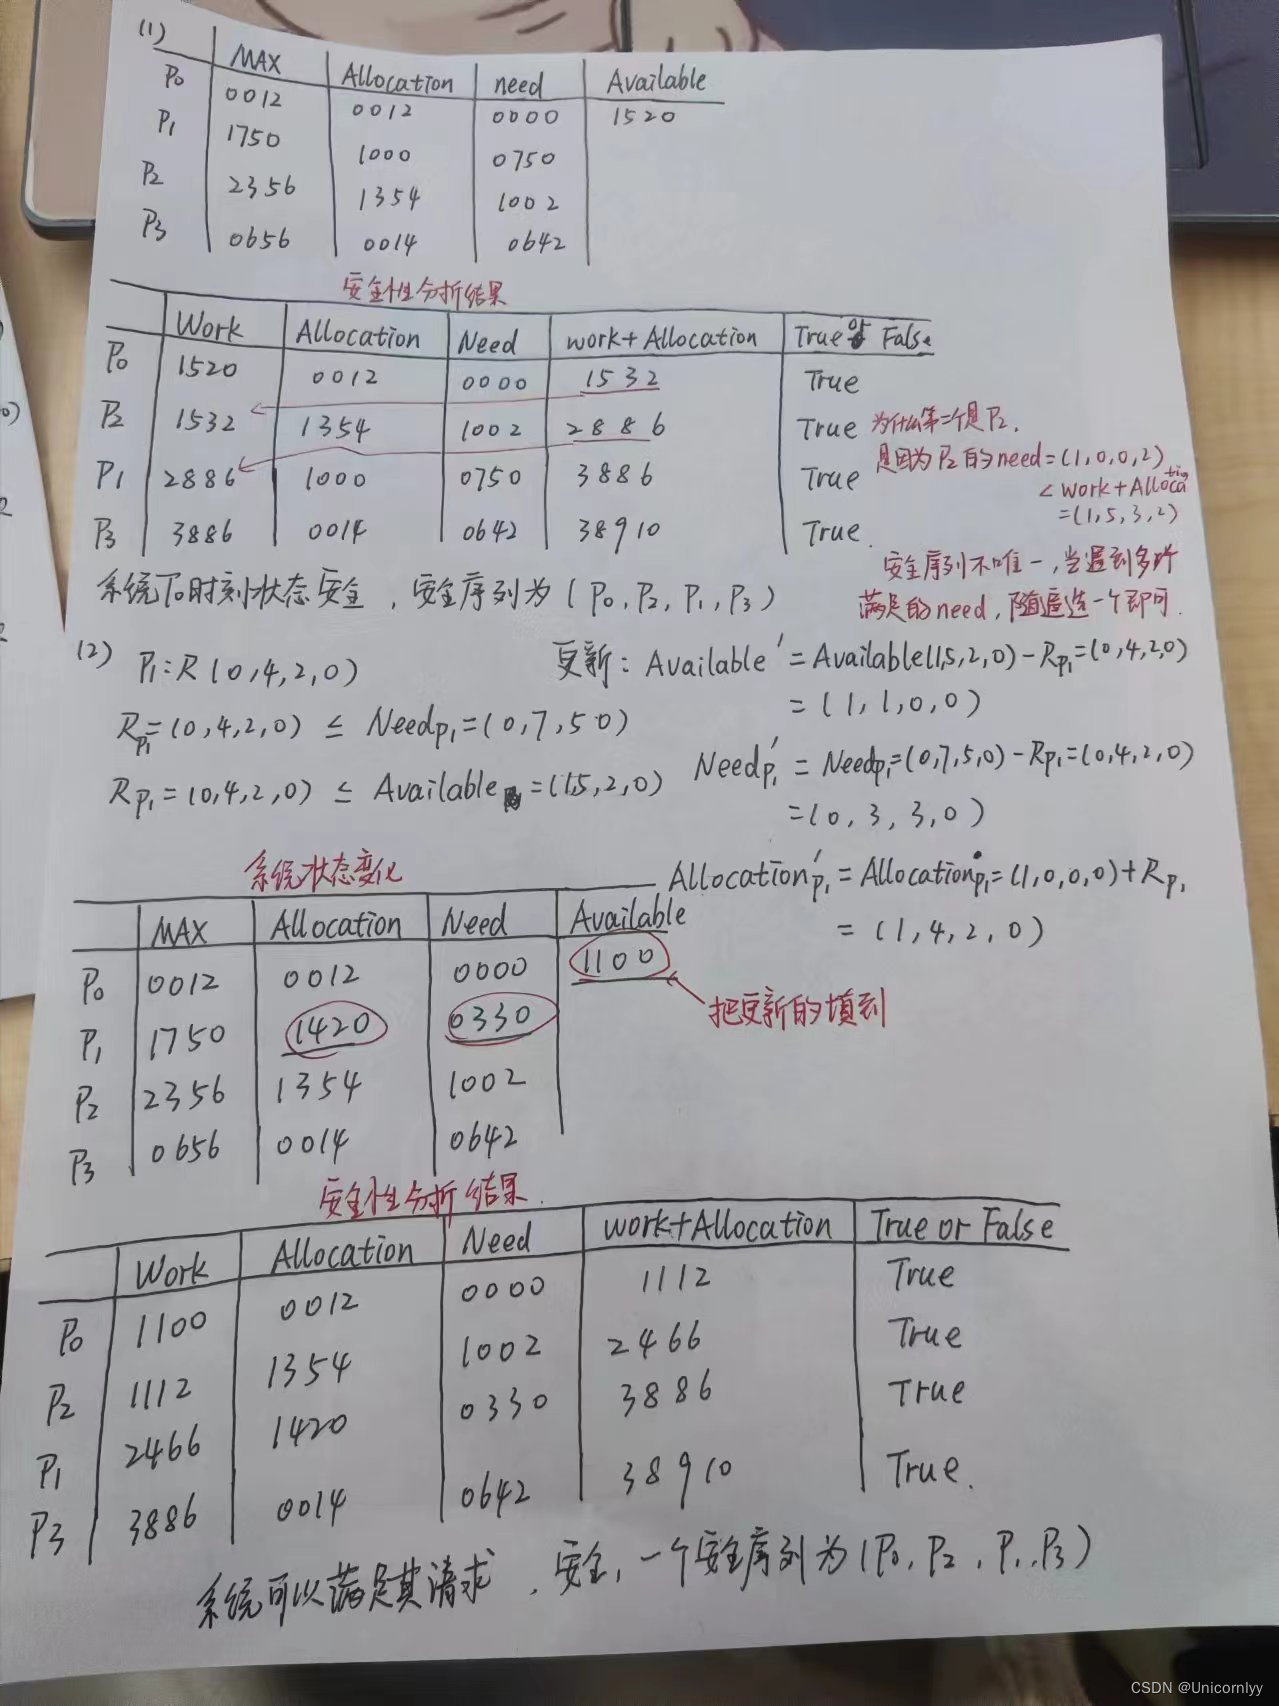 (1)
MAX Allocation need Available
P0 0012 0012 0000 1520
P1 1750 1000 0750
P2 2356 1354 1002
P3 0656 0014 0642
安全性分析结果
Work Allocation Need work+Allocation True or False
P0 1520 0012 0000 1532 True
P2 1532 1354 1002 2886 True
P1 2886 1000 0750 3886 True
P3 3886 0014 0642 38910 True.
为什么第二个是P2,
是因为P2的need=(1,0,0,2)
< work+Allocation
=(1,5,3,2)
安全序列不唯一,当遇到多个
满足的need,随便选一个即可.
系统T0时刻状态安全,安全序列为(P0,P2,P1,P3)
(2) P1:R(0,4,2,0)
RP1=(0,4,2,0) ≤ NeedP1=(0,7,5 0)
RP1=(0,4,2,0) ≤ Available =(1,5,2,0)
更新:Available'=Available(1,5,2,0)-RP1=(0,4,2,0)
=(1,1,0,0)
NeedP1'=NeedP1=(0,7,5,0)-RP1=(0,4,2,0)
=(0,3,3,0)
AllocationP1'=AllocationP1=(1,0,0,0)+RP1
=(1,4,2,0)
系统状态变化
MAX Allocation Need Available
P0 0012 0012 0000 1100
P1 1750 1420 0330
P2 2356 1354 1002
P3 0656 0014 0642
把更新的填到
安全性分析结果.
Work Allocation Need work+Allocation True or False
P0 1100 0012 0000 1112 True
P2 1112 1354 1002 2466 True
P1 2466 1420 0330 3886 True
P3 3886 0014 0642 38910 True.
系统可以满足其请求,安全,一个安全序列为(P0,P2,P1,P3)
CSDN @Unicornlyy